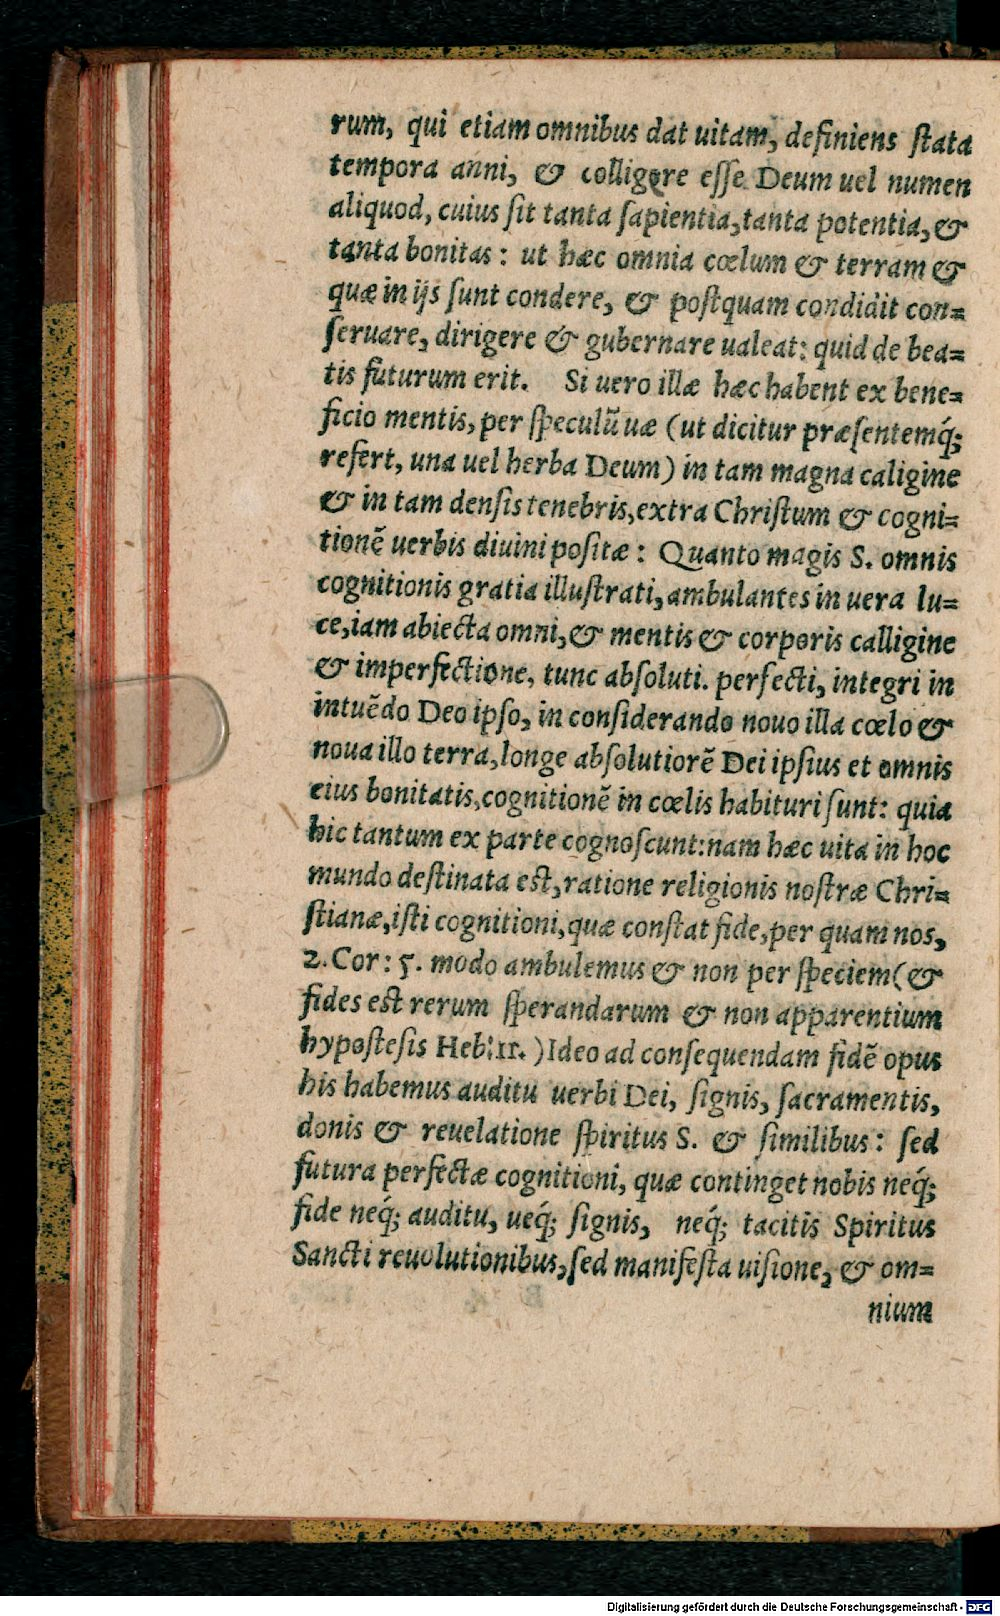 rum, qui etiam omnibus dat uitam, definiens ſtata
tempora anni, & colligere eſſe Deum uel numen
aliquod, cuius ſit tanta ſapientia, tanta potentia, &
tanta bonitas: ut hæc omnia cœlum & terram &
quæ in ijs ſunt condere, & poſtquam condidit con=
ſeruare, dirigere & gubernare ualeat: quid de bea=
tis futurum erit. Si uero illæ hæc habent ex bene=
ficio mentis, per ſpeculũ uæ (ut dicitur præſentemq́;
refert, una uel herba Deum) in tam magna caligine
& in tam denſis tenebris, extra Chriſtum & cogni=
tionẽ uerbis diuini poſitæ: Quanto magis S. omnis
cognitionis gratia illuſtrati, ambulantes in uera lu=
ce, iam abiecta omni, & mentis & corporis calligine
& imperfectione, tunc abſoluti. perfecti, integri in
intuẽdo Deo ipſo, in conſiderando nouo illa cœlo &
noua illo terra, longe abſolutiorẽ Dei ipſius et omnis
eius bonitatis, cognitionẽ in cœlis habituri ſunt: quia
hic tantum ex parte cognoſcunt: nam hæc uita in hoc
mundo deſtinata eſt, ratione religionis noſtræ Chri=
ſtianæ, iſti cognitioni, quæ conſtat fide, per quam nos,
2. Cor: 5. modo ambulemus & non per ſpeciem (&
fides eſt rerum ſperandarum & non apparentium
hypoſteſis Heb: 11. ) Ideo ad conſequendam fidẽ opus
his habemus auditu uerbi Dei, ſignis, ſacramentis,
donis & reuelatione ſpiritus S. & ſimilibus: ſed
futura perfectæ cognitioni, quæ continget nobis neq́;
fide neq́; auditu, ueq́; ſignis, neq́; tacitis Spiritus
Sancti reuolutionibus, ſed manifeſta uiſione, & om=
nium
Digitalisierung gefördert durch die Deutsche Forschungsgemeinschaft - DFG